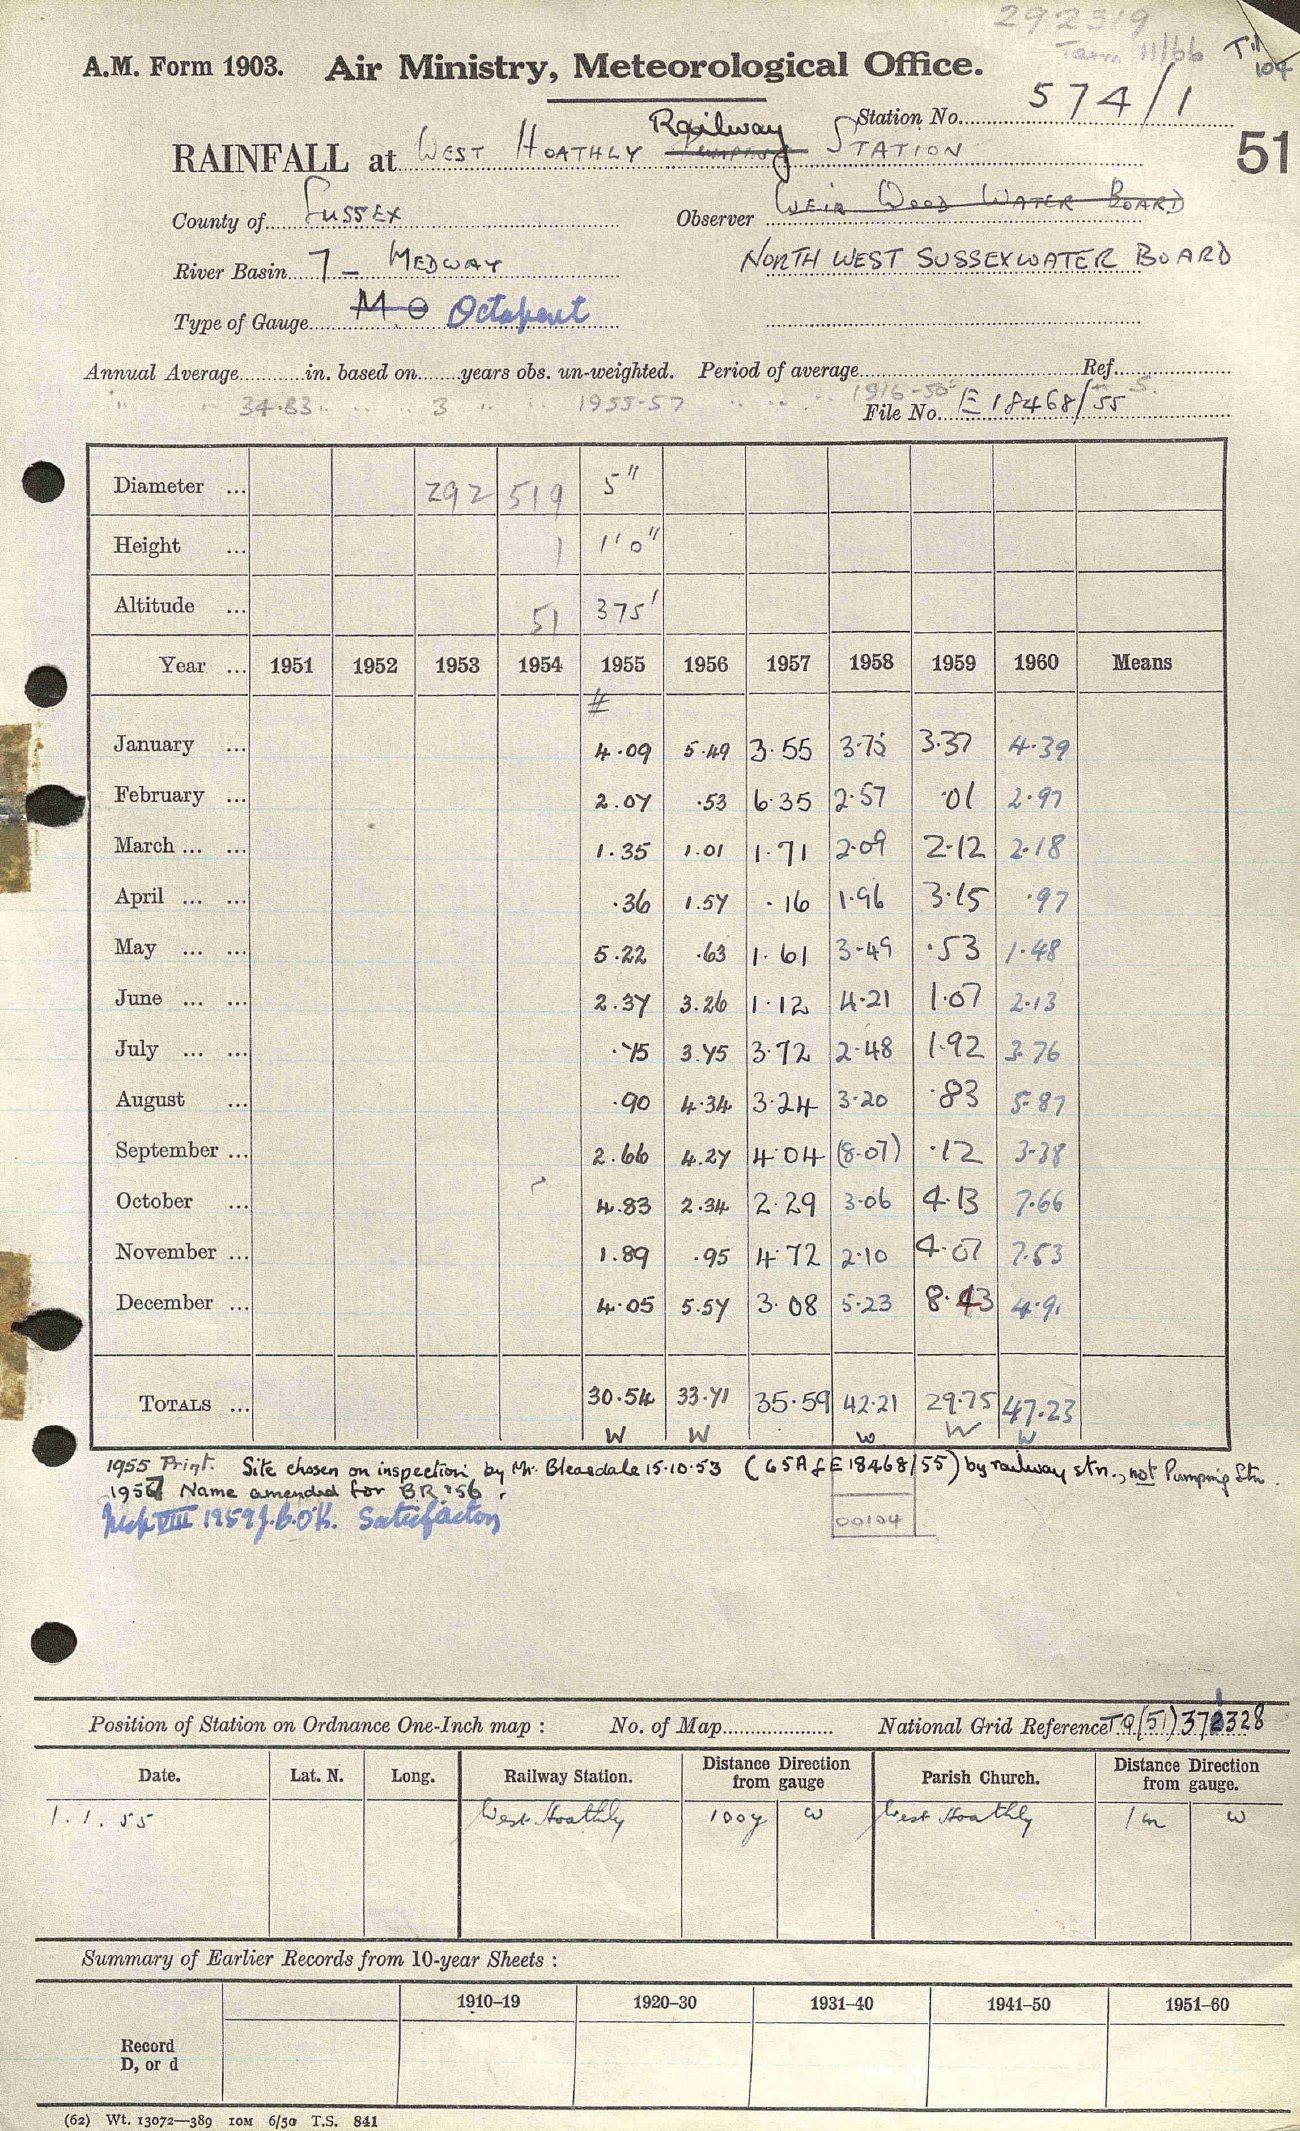 292519
Term 11/66
A.M. Form 1903. Air Ministry, Meteorological Office.
Station No. 574/1
51
RAINFALL at West Hoathly Railway Station
County of Sussex
Observer Weir Wood Water Board
River Basin 7 - Medway
North West Sussex Water Board
Type of Gauge M.O Octapent
Annual Average in. based on years obs. un-weighted. Period of average Ref.
" " 34.83 3 " 1955-57 1916-50
File No. E 18468/55
Diameter ... 292 519 5"
Height ... 1 1'0"
Altitude ... 51 375'
Year ... 1951 1952 1953 1954 1955 1956 1957 1958 1959 1960 Means
#
January ... 4.09 5.49 3.55 3.75 3.37 4.39
February ... 2.07 .53 6.35 2.57 .01 2.97
March ... ... 1.35 1.01 1.71 2.09 2.12 2.18
April ... ... .36 1.57 .16 1.96 3.15 .97
May ... ... 5.22 .63 1.61 3.49 .53 1.48
June ... ... 2.37 3.26 1.12 4.21 1.07 2.13
July ... ... .75 3.75 3.72 2.48 1.92 3.76
August ... .90 4.34 3.24 3.20 .83 5.87
September ... 2.66 4.27 4.04 (8.07) .12 3.38
October ... 4.83 2.34 2.29 3.06 4.13 7.66
November ... 1.89 .95 4.72 2.10 4.07 7.53
December ... 4.05 5.57 3.08 5.23 8.43 4.91
TOTALS ... 30.54 33.71 35.59 42.21 29.75 47.23
W W W W W
1955 Print. Site chosen on inspection by Mr. Bleasdale 15.10.53 (65A of E18468/55) by railway stn., not Pumping Stn.
1957 Name amended for BR '56.
Insp VIII 1959 J.G.O'K. Satisfactory
00104
Position of Station on Ordnance One-Inch map : No. of Map National Grid Reference TQ(51)371328
Date. Lat. N. Long. Railway Station. Distance from gauge Direction Parish Church. Distance from gauge. Direction
1.1.55 West Hoathly 100y W West Hoathly 1m W
Summary of Earlier Records from 10-year Sheets :
1910–19 1920–30 1931–40 1941–50 1951–60
Record
D, or d
(62) Wt. 13072—389 10M 6/50 T.S. 841